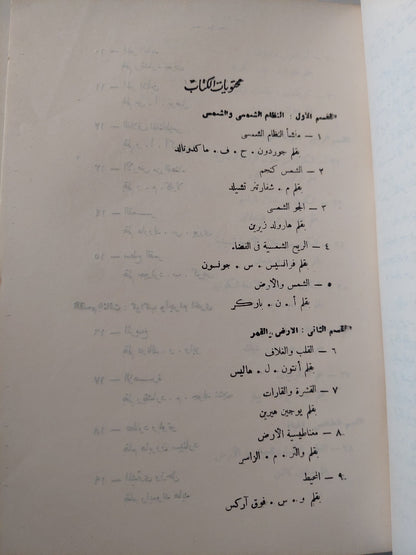 محتويات الكتاب
القسم الأول : النظام الشمسى والشمس
١ — منشأ النظام الشمسى
بقلم جوردون . ح . ف . ماكدونالد
٢ — الشمس كنجم
بقلم م . شفارتز تشيلد
٣ — الجو الشمسى
بقلم هارولد زيرين
٤ — الريح الشمسية فى الفضاء
بقلم فرانسيس . س . جونسون
٥ — الشمس والأرض
بقلم أ . ن . باركر
القسم الثانى : الارض والقمر
٦ — القلب والغلاف
بقلم أنتون . ل . هاليس
٧ — القشرة والقارات
بقلم يوجين هيرين
٨ — مغناطيسية الأرض
بقلم والتر . م . الزاسر
٩ — المحيط
بقلم و . س . فوق آركس